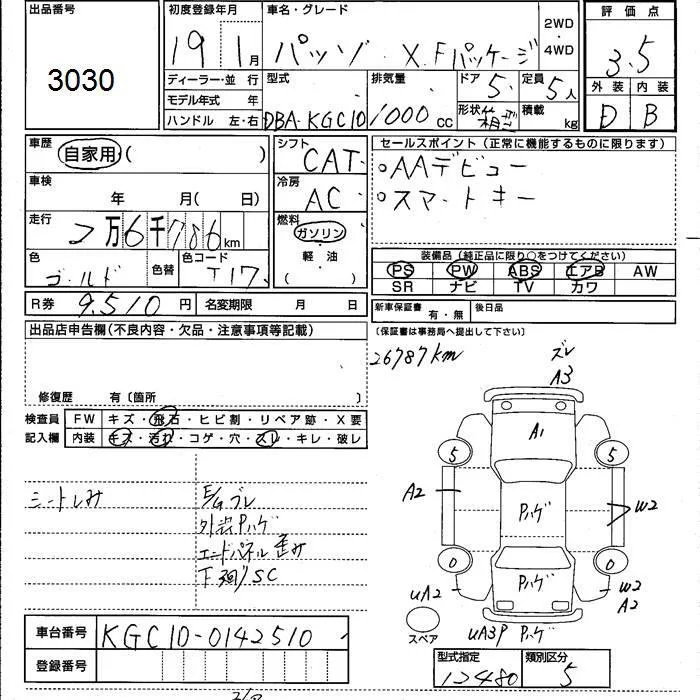 出品番号
3030
初度登録年月
19 1月
車名・グレード
パッソ X Fパッケージ
2WD
・
4WD
評価点
3.5
外装 内装
D B
ディーラー・並 行
モデル年式 年
ハンドル 左・右
型式
DBA-KGC10
排気量
1000cc
ドア
5
定員
5人
形状
積載
kg
車歴
自家用( )
シフト
CAT
セールスポイント(正常に機能するものに限ります)
。AAデビュー
。スマートキー
車検
年 月( 日)
冷房
AC
走行
2万6千786km
燃料
ガソリン
・
軽油
( )
色
ゴールド
色替
色コード
T17
装備品(純正品に限り○をつけてください)
PS PW ABS エアB AW
SR ナビ TV カワ
R券 9.510円
名変期限 月 日
新車保証書
有・無
後日品
(保証書は事務局へ提出して下さい)
出品店申告欄(不良内容・欠品・注意事項等記載)
修復歴 有(箇所 )
26787km
検査員
記入欄
FW キズ・飛石・ヒビ割・リペア跡・X要
内装 キズ・汚れ・コゲ・穴・スレ・キレ・破レ
シートしみ
E/Gブレ
外装Pハゲ
エンドパネル歪み
下廻りSC
ズレ
A3
A1
5 5
A2
Pハゲ
W2
0 0
Pハゲ
UA2
W2
A2
スペア
UA3P Pハゲ
車台番号 KGC10-0142510
登録番号
型式指定
12480
類別区分
5